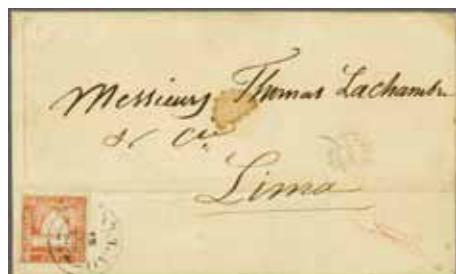 Messieurs Thomas Lachambre
& Cie
Lima